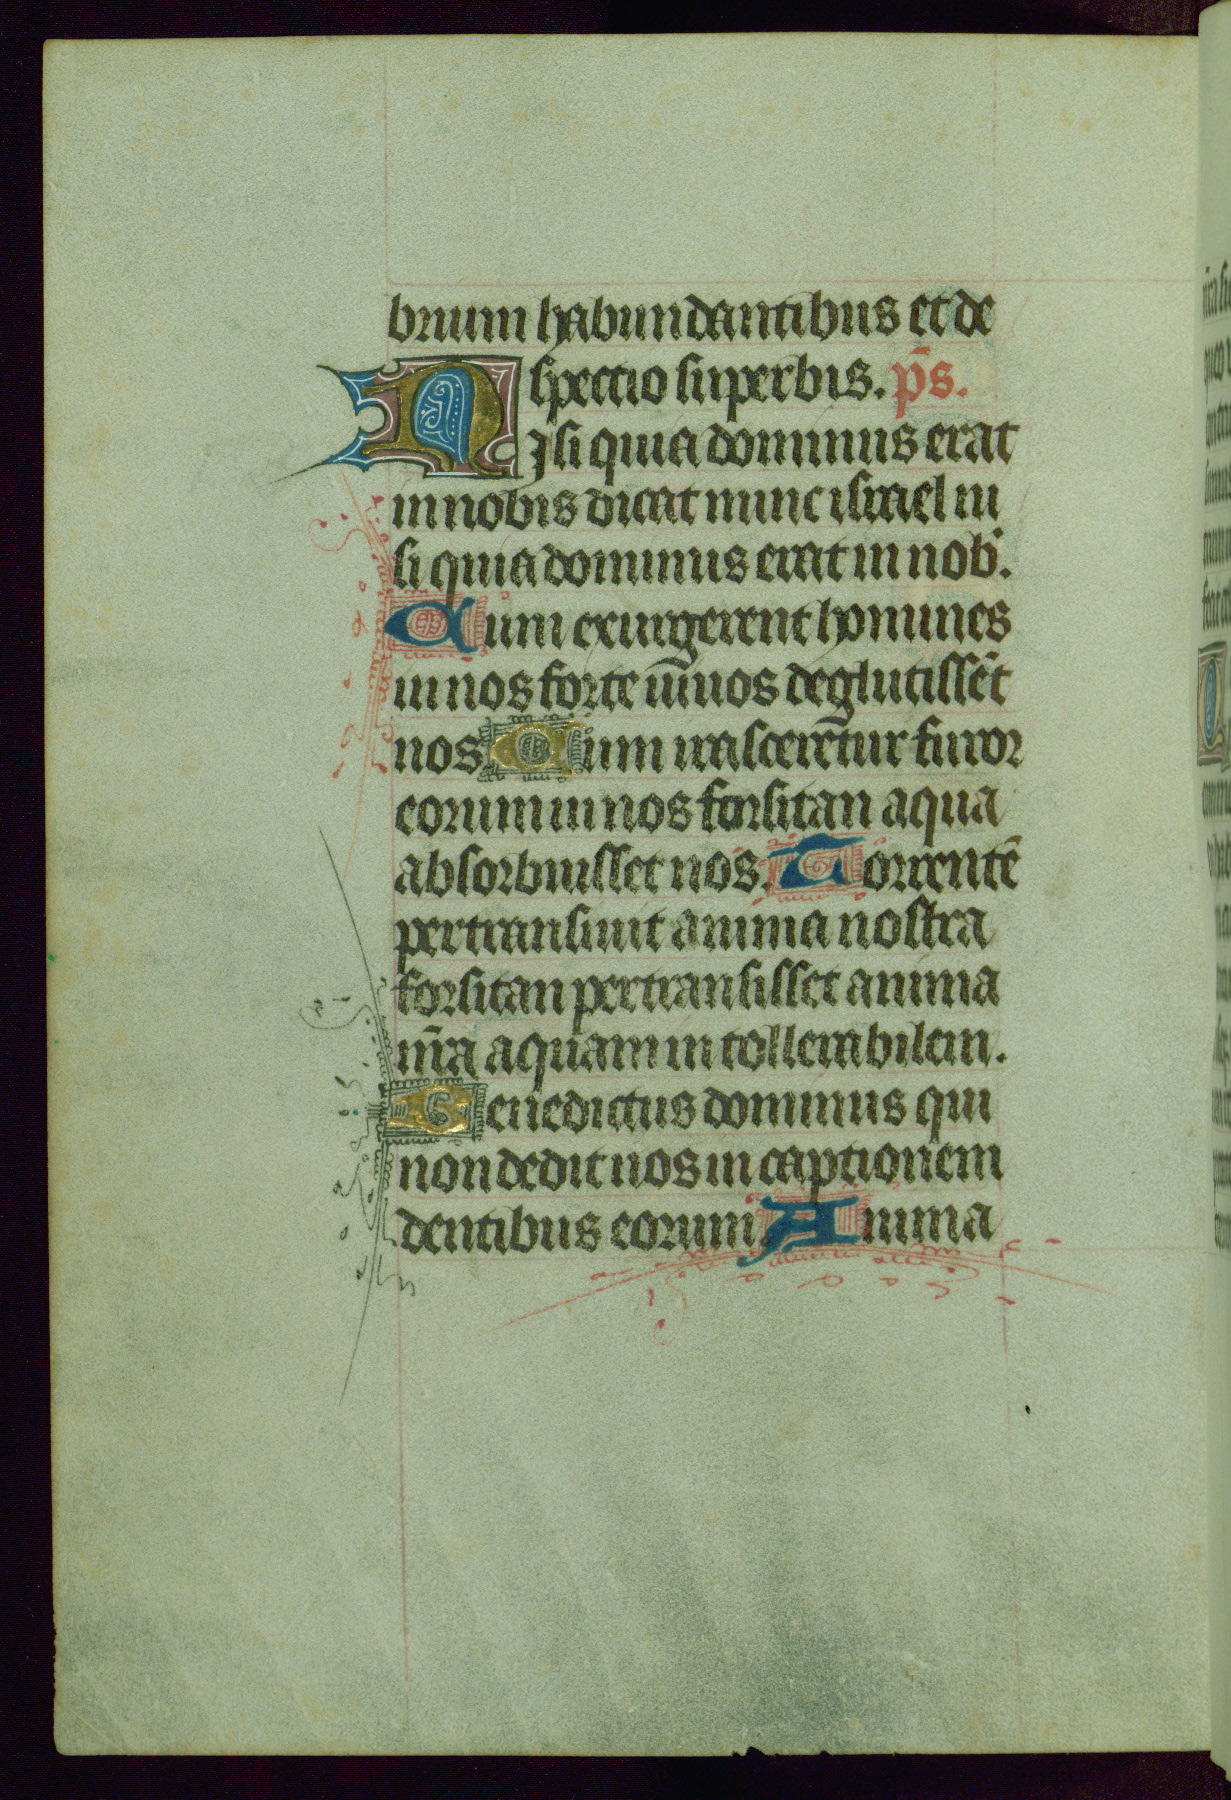 brium habundantibus et de
spectio superbis. p̄s.
Nisi quia dominus erat
in nobis dicat nunc israel ni
si quia dominus erat in nob'.
Cum exurgerent homines
in nos forte uiuos deglutissēt
nos Cum irasceretur furor
eorum in nos forsitan aqua
absorbuisset nos. Torrentē
pertransiuit anima nostra
forsitan pertransisset anima
n̄ra aquam intollerabilem.
Benedictus dominus qui
non dedit nos in captionem
dentibus eorum. Anima